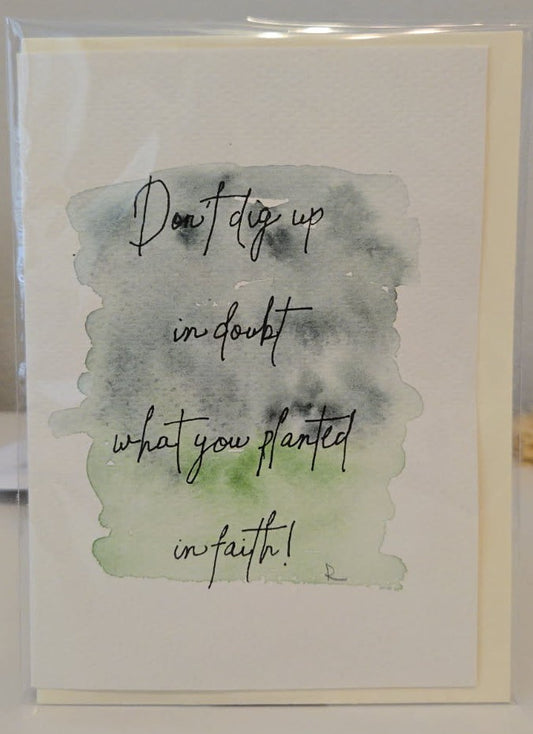 Don't dig up
in doubt
what you planted
in faith!
R